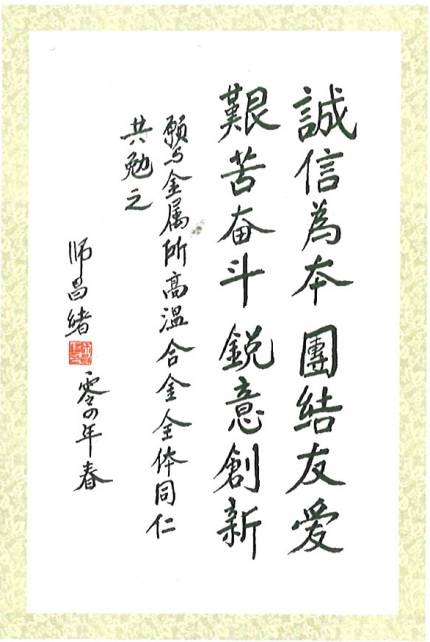 誠信為本 團結友爱
艱苦奋斗 銳意創新
願与金属所高温合金全体同仁
共勉之
师昌緒
零四年春